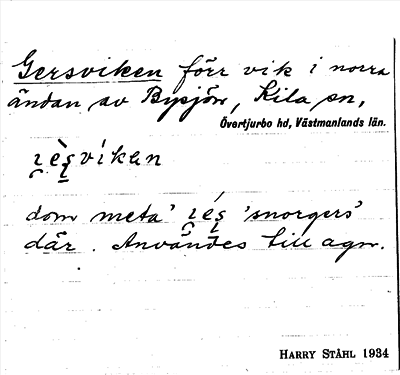 Gersviken förr vik i norra
ändan av Bysjön, Kila sn,
Övertjurbo hd, Västmanlands län.
dom meta' 'snorgers'
där. Användes till agn.
HARRY STÅHL 1934